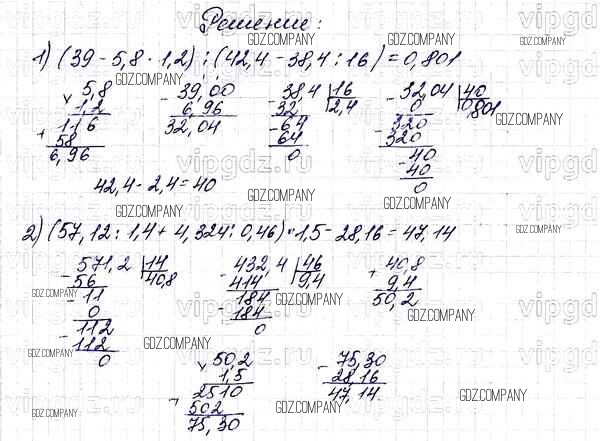 Решение:
1) (39 - 5,8 · 1,2) : (42,4 - 38,4 : 16) = 0,801
5,8 39,00 38,4 | 16 32,04 | 40
× 1,2 - 6,96 - 32 2,4 - 0 0,801
116 32,04 - 64 - 320
+ 58 64 320
6,96 0 - 40
42,4 - 2,4 = 40 40
0
2) (57,12 : 1,4 + 4,324 : 0,46) · 1,5 - 28,16 = 47,14
571,2 | 14 432,4 | 46 40,8
- 56 40,8 - 414 9,4 + 9,4
- 11 - 184 50,2
0 184
- 112 0
112
0
50,2 75,30
× 1,5 - 28,16
2510 47,14
+ 502
75,30
GDZ.COMPANY
vipgdz.ru